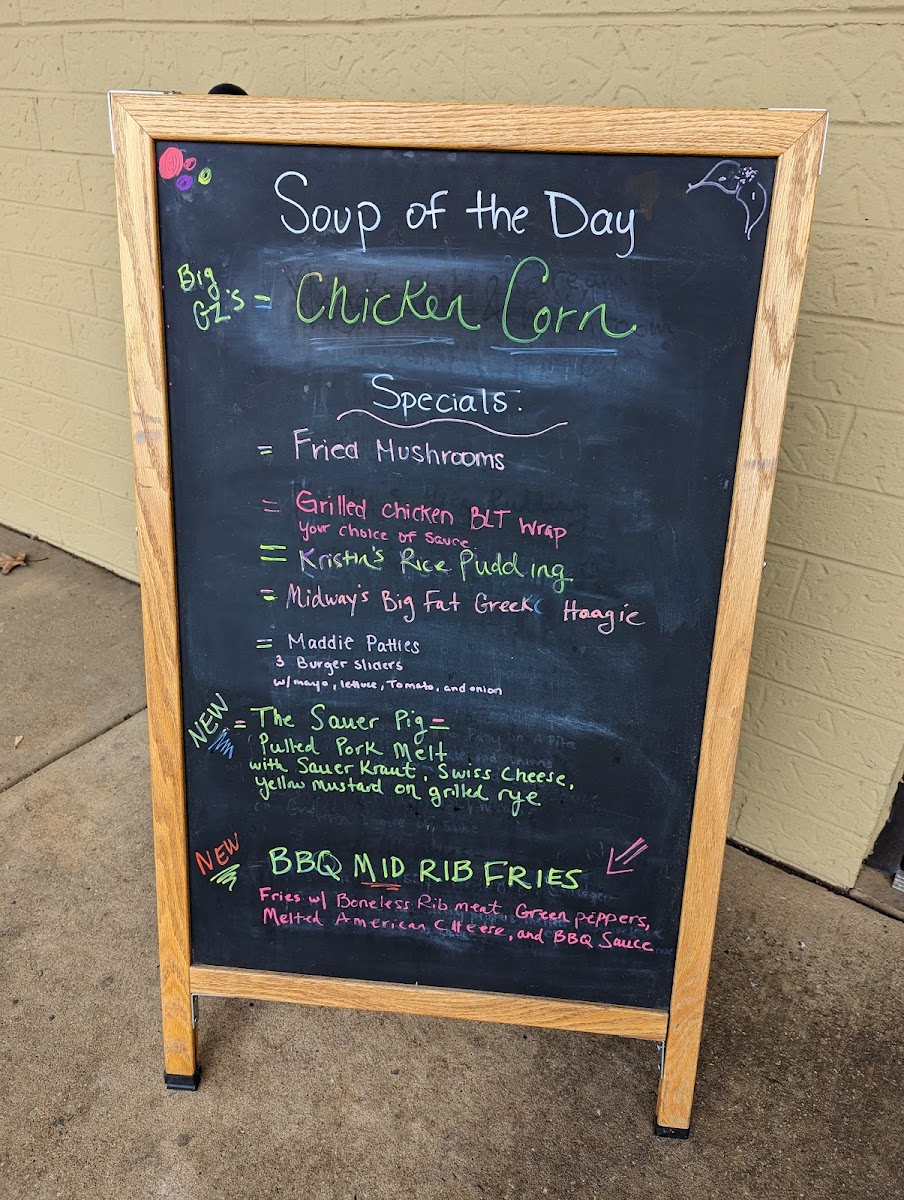 Soup of the Day
Big
GZ's = Chicken Corn
Specials:
= Fried Mushrooms
= Grilled chicken BLT Wrap
your choice of Sauce
= Kristin's Rice Pudding
= Midway's Big Fat Greek Hoagie
= Maddie Patties
3 Burger sliders
w/mayo, lettuce, Tomato, and onion
NEW = The Sauer Pig =
Pulled Pork Melt
with Sauer Kraut, Swiss Cheese,
yellow mustard on grilled rye
NEW BBQ MID RIB FRIES
Fries w/ Boneless Rib meat, Green peppers,
Melted American Cheese, and BBQ Sauce